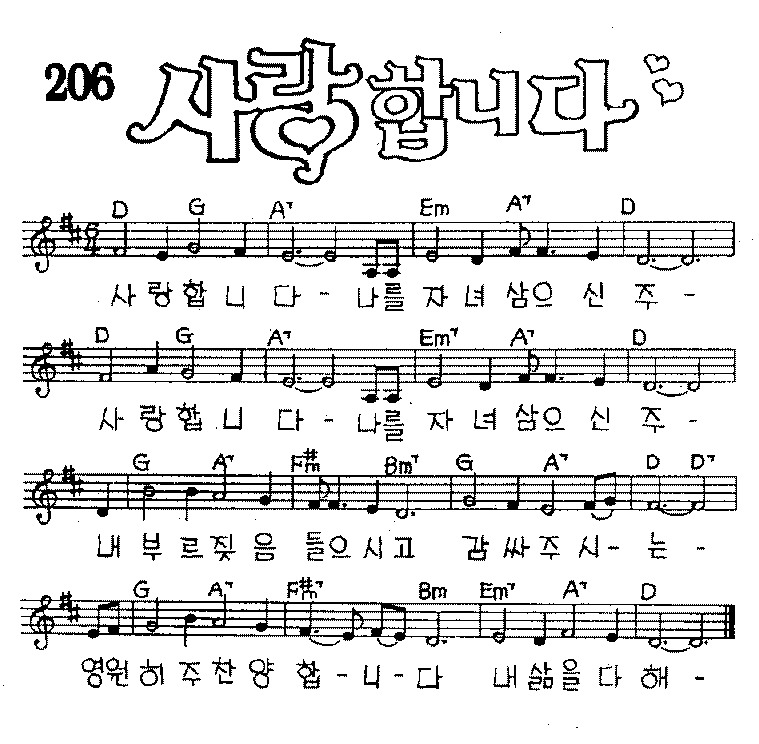 206 사랑합니다
D G A7 Em A7 D
6/4
사랑합니다- 나를 자녀삼으 신 주-
D G A7 Em7 A7 D
사랑합니다- 나를 자녀삼으 신 주-
G A7 F#m Bm7 G A7 D D7
내 부르짖음 들으시고 감싸주시-는-
G A7 F#m7 Bm Em7 A7 D
영원히주찬양 합-니-다 내삶을다해-